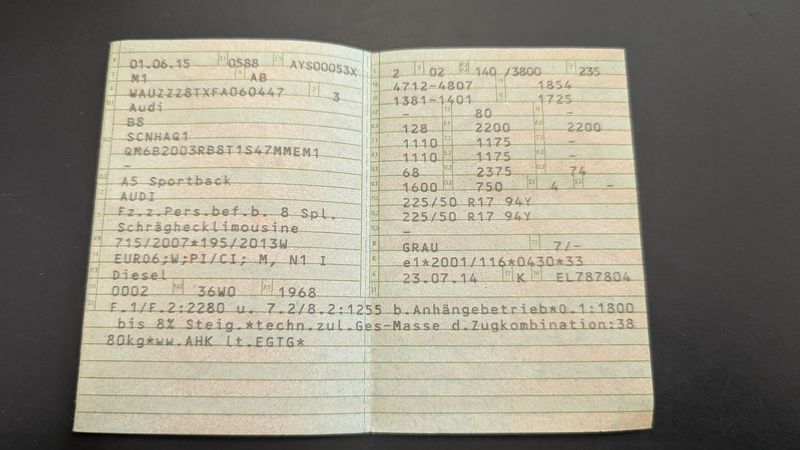 01.06.15 0588 AYS00053X
M1 AB
WAUZZZ8TXFA060447 3
Audi
B8
SCNHAQ1
QM6B2003RB8T1S47MMEM1
-
A5 Sportback
AUDI
Fz.z.Pers.bef.b. 8 Spl.
Schräghecklimousine
715/2007*195/2013W
EURO6;W;PI/CI; M, N1 I
Diesel
0002 36W0 1968
2 02 140 /3800 235
4712-4807 1854
1381-1401 1725
- 80 -
128 2200 2200
1110 1175 -
1110 1175 -
68 2375 74
1600 750 4 -
225/50 R17 94Y
225/50 R17 94Y
-
GRAU 7/-
e1*2001/116*0430*33
23.07.14 K EL787804
F.1/F.2:2280 u. 7.2/8.2:1255 b.Anhängebetrieb*0.1:1800
bis 8% Steig.*techn.zul.Ges-Masse d.Zugkombination:38
80kg*ww.AHK lt.EGTG*